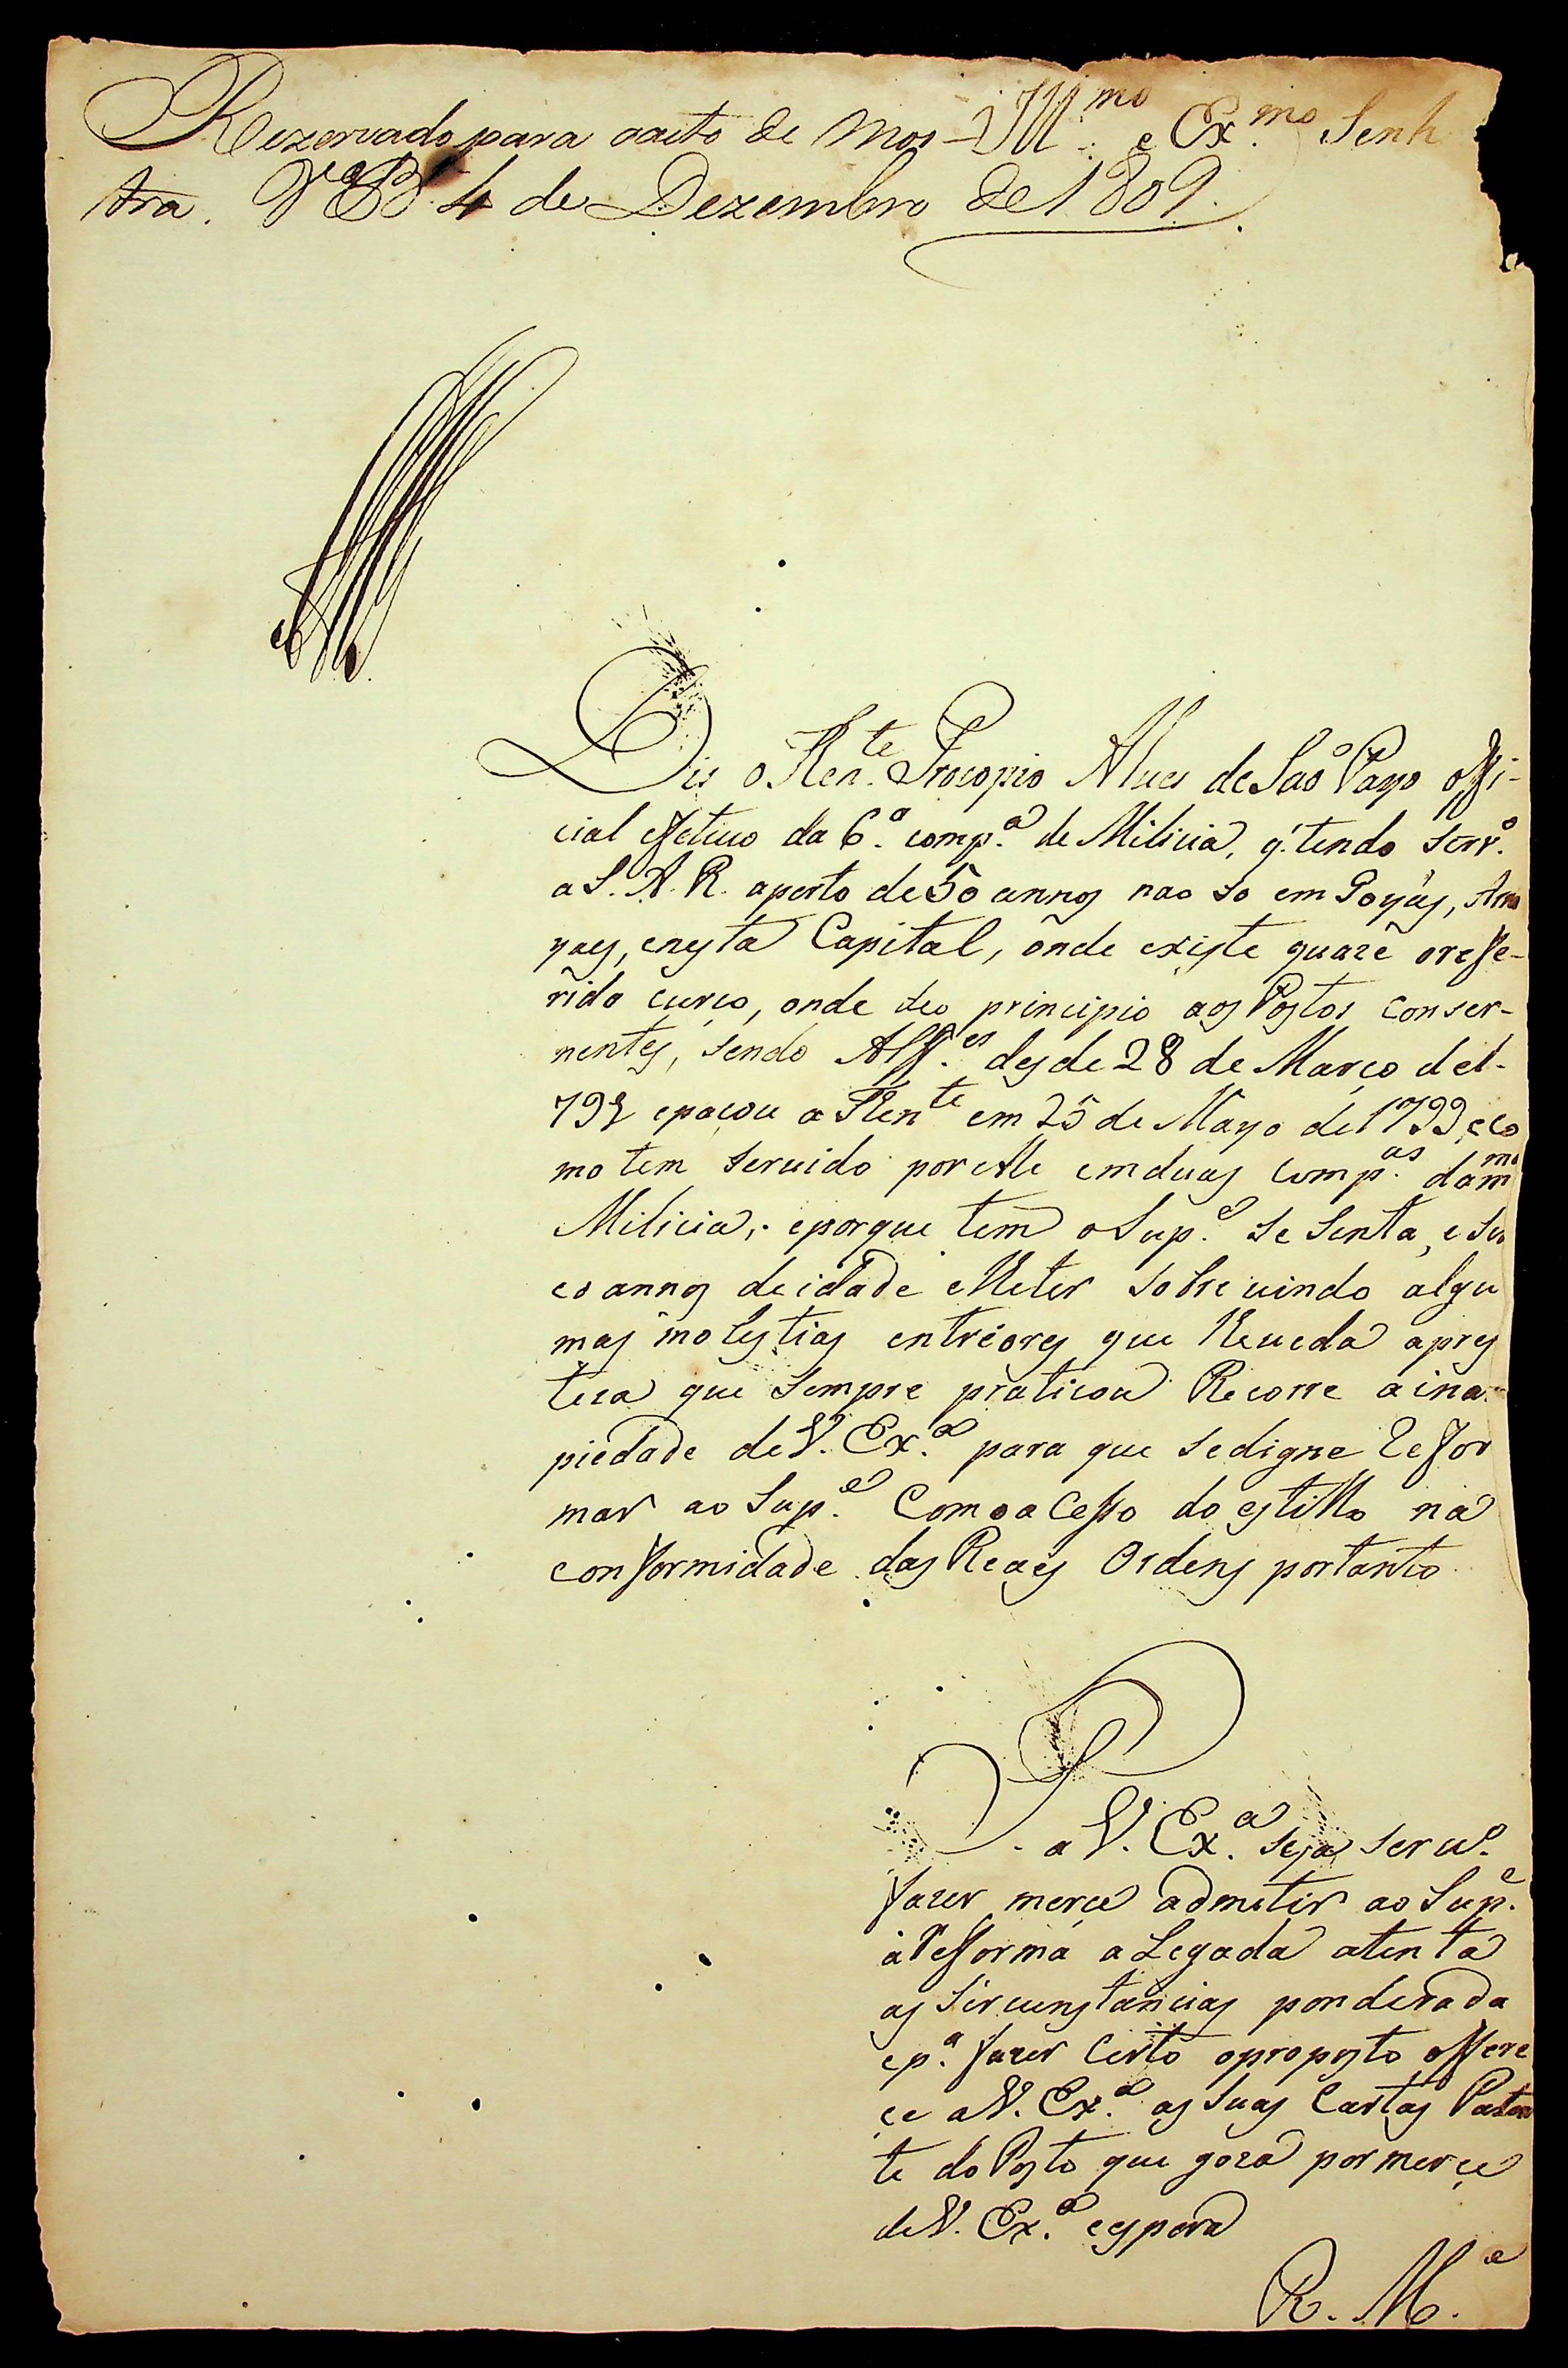 Rezervado para o acto de mos-
tra. V.ª B.ª 4 de Dezembro de 1809.
Ill.mo e Ex.mo Senh
Dis o Ten.te Procopio Alues de Saõ Payo offi-
cial effetiuo da 6.ª comp.ª de Milicia, q. tendo serv.º
a S. A. R. aperto de 50 annos nao so em Goyás,
yaes, enesta Capital, onde existe quaze oreffe-
rido curço, onde deo principio aos Postos conser-
nentes, sendo Alff.es desde 28 de Março de1-
79 epaçou a Ten.te em 25 de Mayo de 1799 eco
mo tem seruido por elle emduas Comp.as dam.ma
Milicia; eporque tem o Sup.e se senta, e sin
co annos de idade elleter sobre uindo algu
mas molestias entriores que lleueda apres
teza que sempre praticou Recorre a ina-
piedade de V. Ex.ª para que sedigne Reffor
mar ao Sup.e Com o aCesso do estillo na
conformidade das Reaes Ordens portanto
P. a V. Ex.ª seja seru.º
fazer merce admetir ao Sup.e
a Refforma aLegada atenta
as sircunstancias ponderada
ep.ª fazer Certo oproposto offere
ce aV. Ex.ª as suas Cartas Paten
te do Posto que goza por merce
de V. Ex.ª eespera
R. M.e